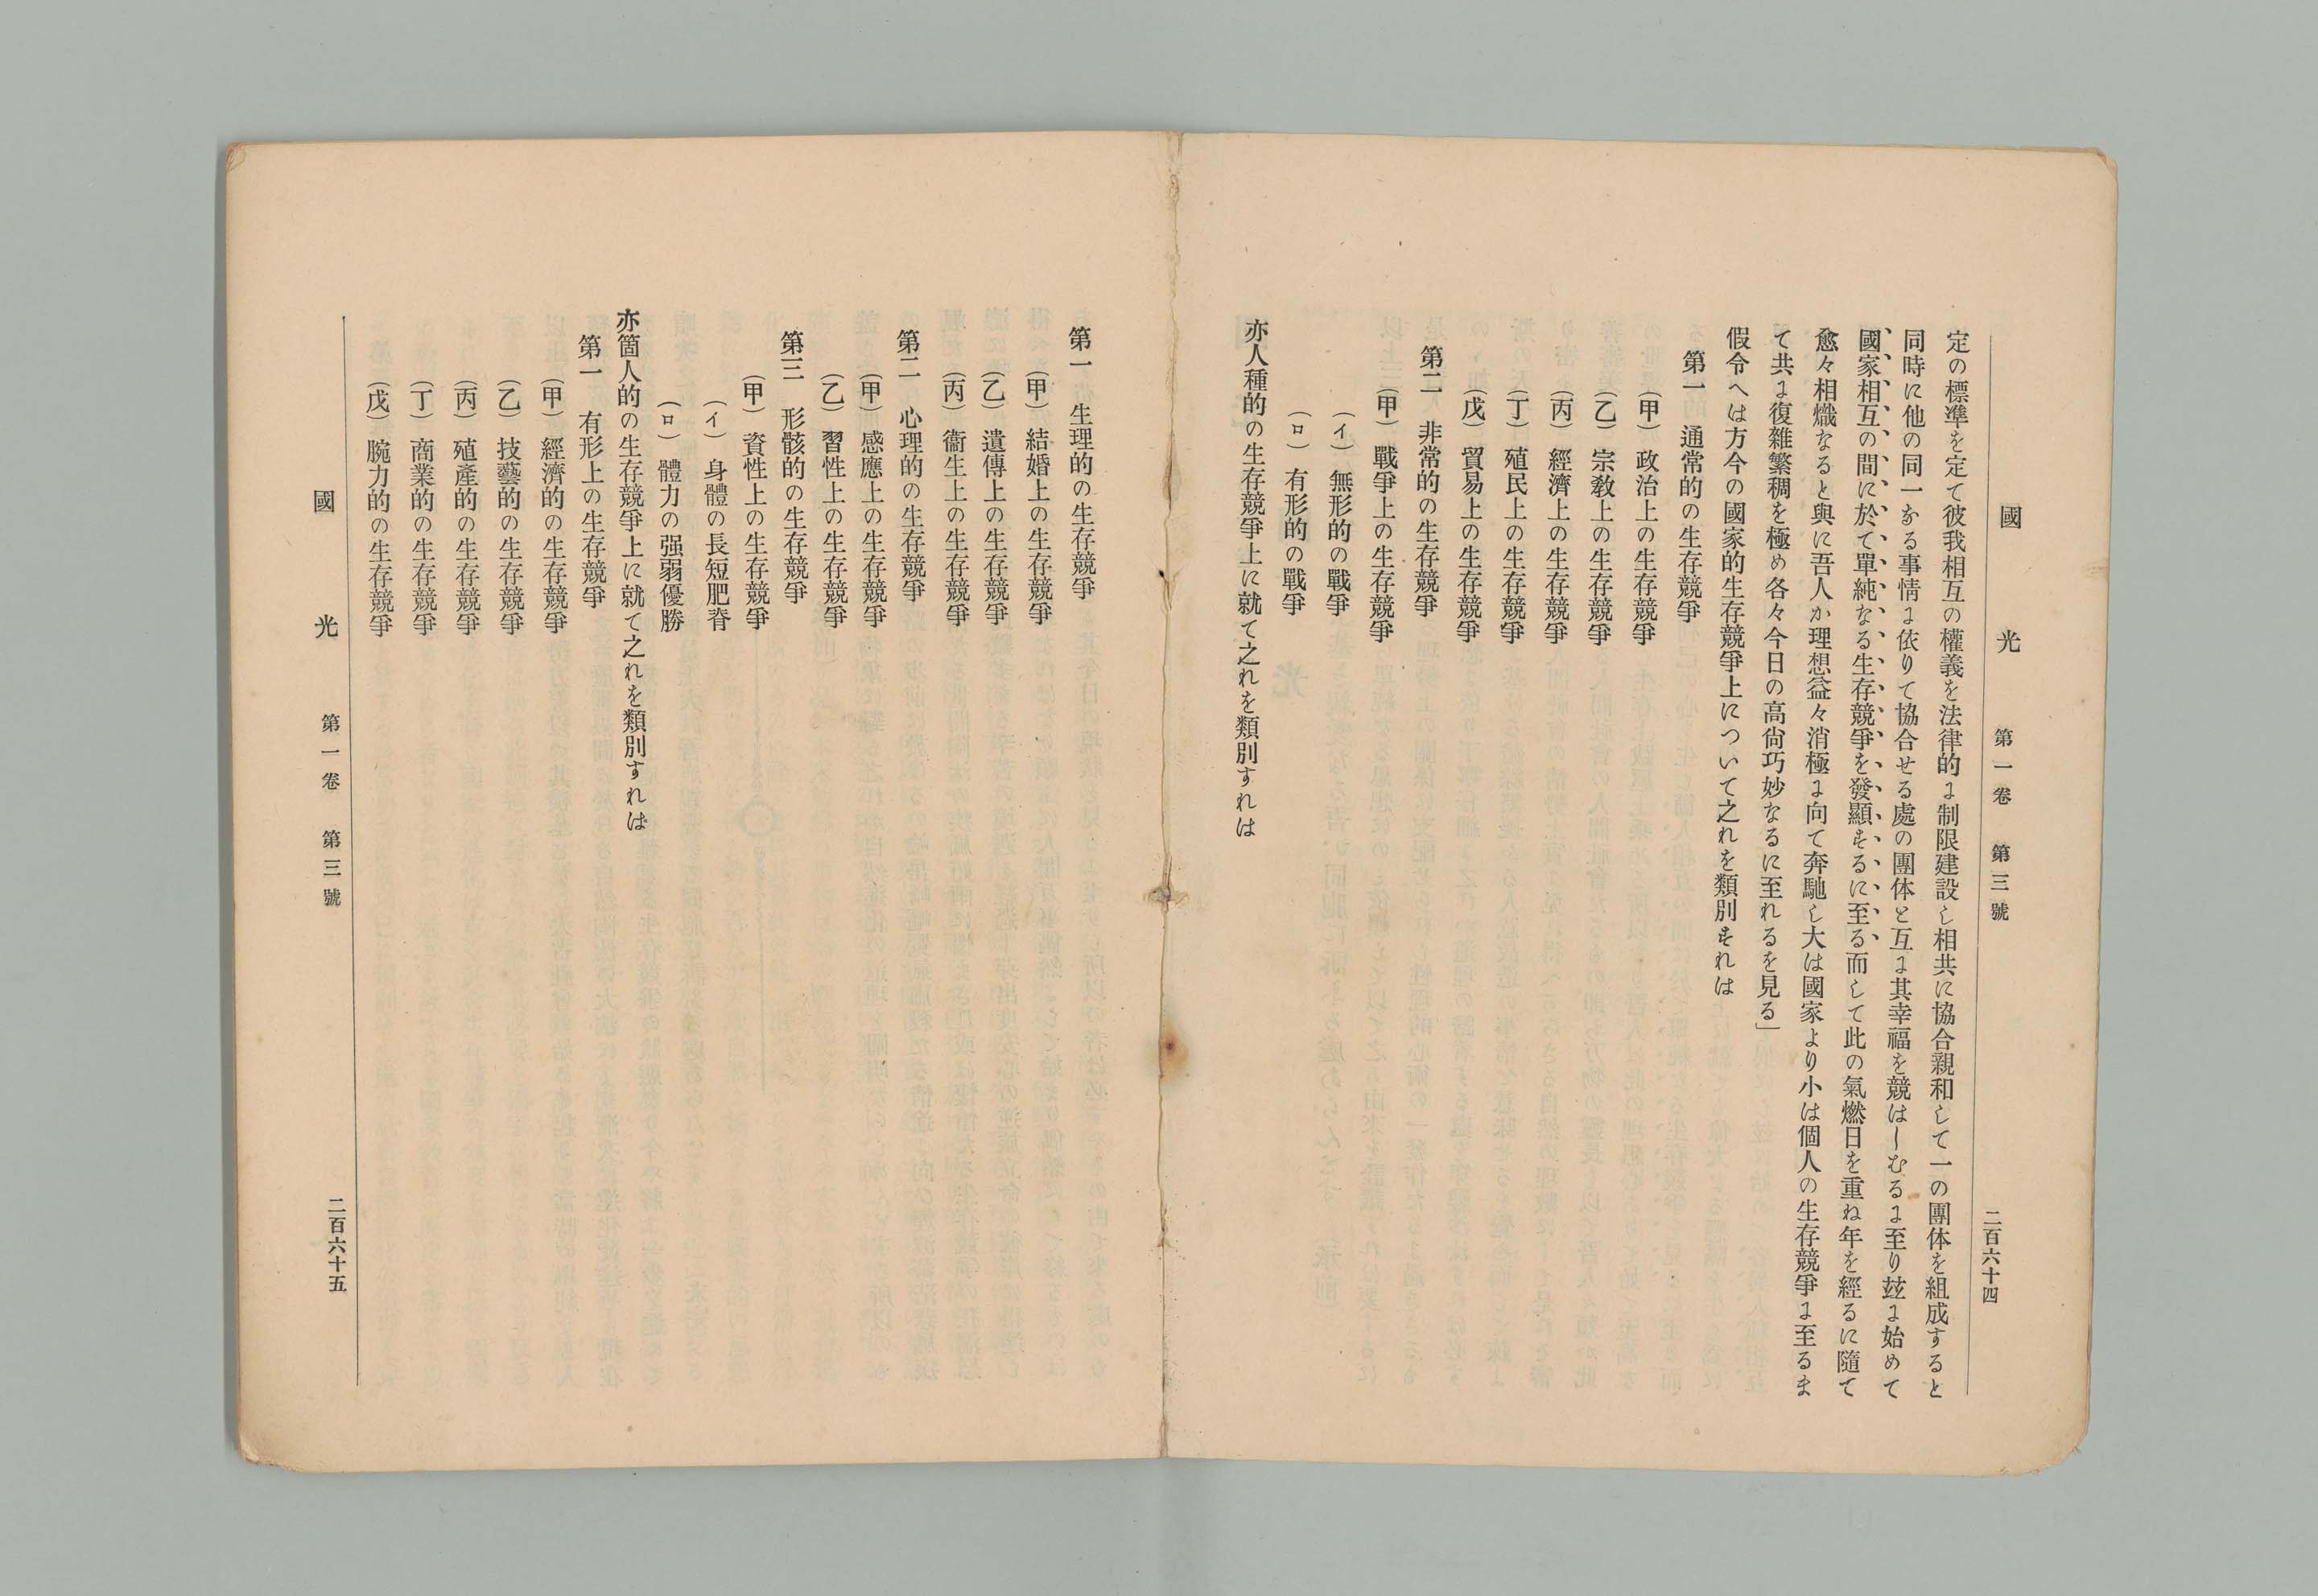 國光 第一卷 第三號 二百六十四
定の標準を定て彼我相互の權義を法律的に制限建設し相共に協合親和して一の團体を組成すると
同時に他の同一なる事情に依りて協合せる處の團体と互に其幸福を競はしむるに至り玆に始めて
國家相互の間に於て單純なる生存競爭を發顯するに至る而して此の氣燃日を重ね年を經るに隨て
愈々相熾なると與に吾人か理想益々消極に向て奔馳し大は國家より小は個人の生存競爭に至るま
て共に復雜繁稠を極め各々今日の高尙巧妙なるに至れるを見る」
假令へは方今の國家的生存競爭上について之れを類別すれは
第一 通常的の生存競爭
(甲) 政治上の生存競爭
(乙) 宗敎上の生存競爭
(丙) 經濟上の生存競爭
(丁) 殖民上の生存競爭
(戊) 貿易上の生存競爭
第二 非常的の生存競爭
(甲) 戰爭上の生存競爭
(イ) 無形的の戰爭
(ロ) 有形的の戰爭
亦人種的の生存競爭上に就て之れを類別すれは
第一 生理的の生存競爭
(甲) 結婚上の生存競爭
(乙) 遺傳上の生存競爭
(丙) 衞生上の生存競爭
第二 心理的の生存競爭
(甲) 感應上の生存競爭
(乙) 習性上の生存競爭
第三 形骸的の生存競爭
(甲) 資性上の生存競爭
(イ) 身體の長短肥脊
(ロ) 體力の强弱優勝
亦箇人的の生存競爭上に就て之れを類別すれは
第一 有形上の生存競爭
(甲) 經濟的の生存競爭
(乙) 技藝的の生存競爭
(丙) 殖產的の生存競爭
(丁) 商業的の生存競爭
(戊) 腕力的の生存競爭
國光 第一卷 第三號 二百六十五